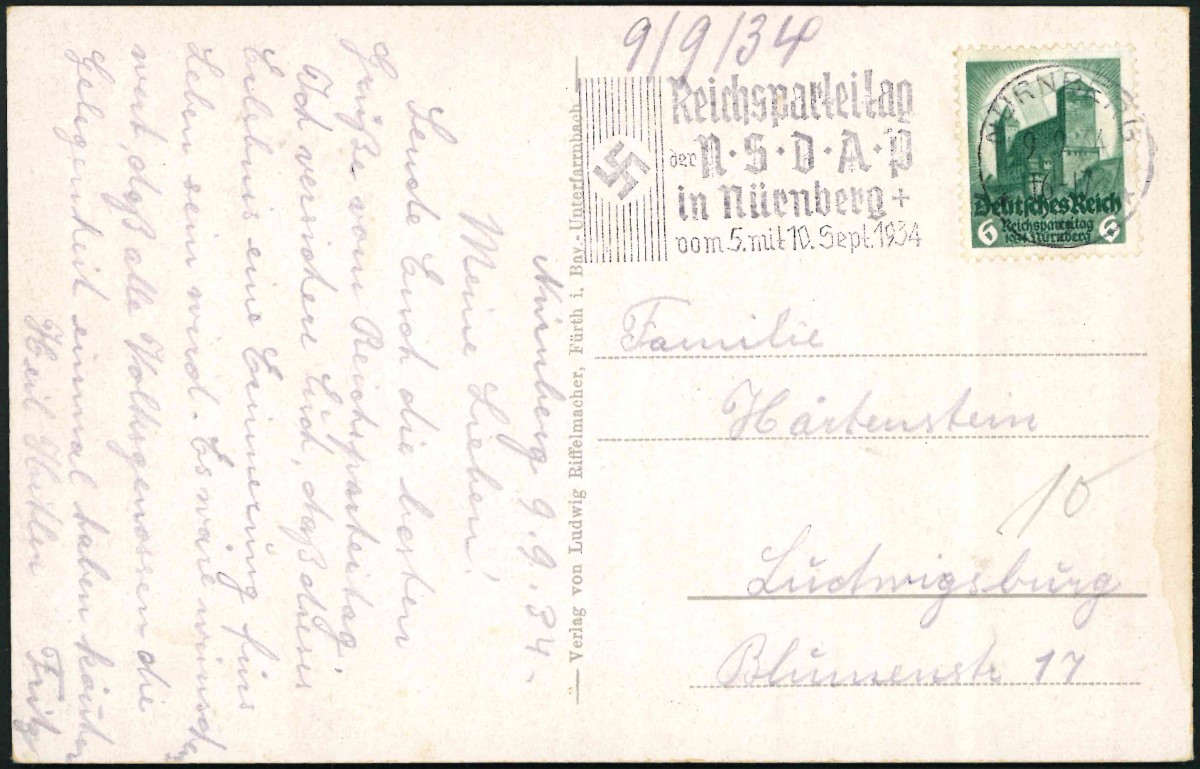 9/9/34
Reichsparteitag
der N·S·D·A·P
in Nürnberg +
vom 5. mit 10. Sept. 1934
NÜRNBERG
9.9.34
Deutsches Reich
Reichsparteitag
1934 Nürnberg
6 6
Nürnberg 9.9.34.
Meine Lieben!
Sende Euch die besten
Grüße vom Reichsparteitag.
Und versichte Euch, daß dieses
Erlebnis eine Erinnerung fürs
Leben sein wird. Es wäre wünschens
wert, daß alle Volksgenossen die
Gelegenheit einmal haben könnten
Heil Hitler Fritz
Verlag von Ludwig Riffelmacher, Fürth i. Bay.-Unterfarrnbach
Familie
Härtenstein
10
Ludwigsburg
Blumenstr 17